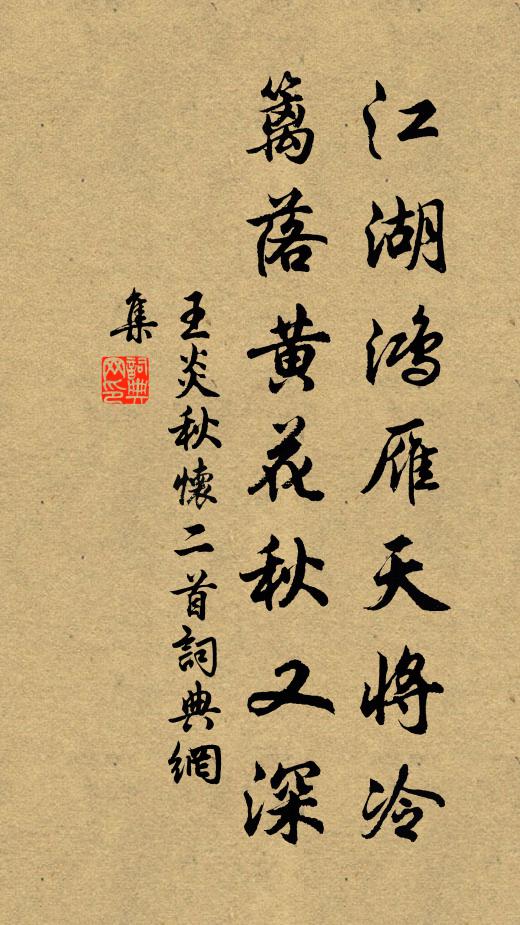 江湖鴻雁天將冷
籬落黄花秋又深
王炎秋懷二首詞典網
集
詞典網印